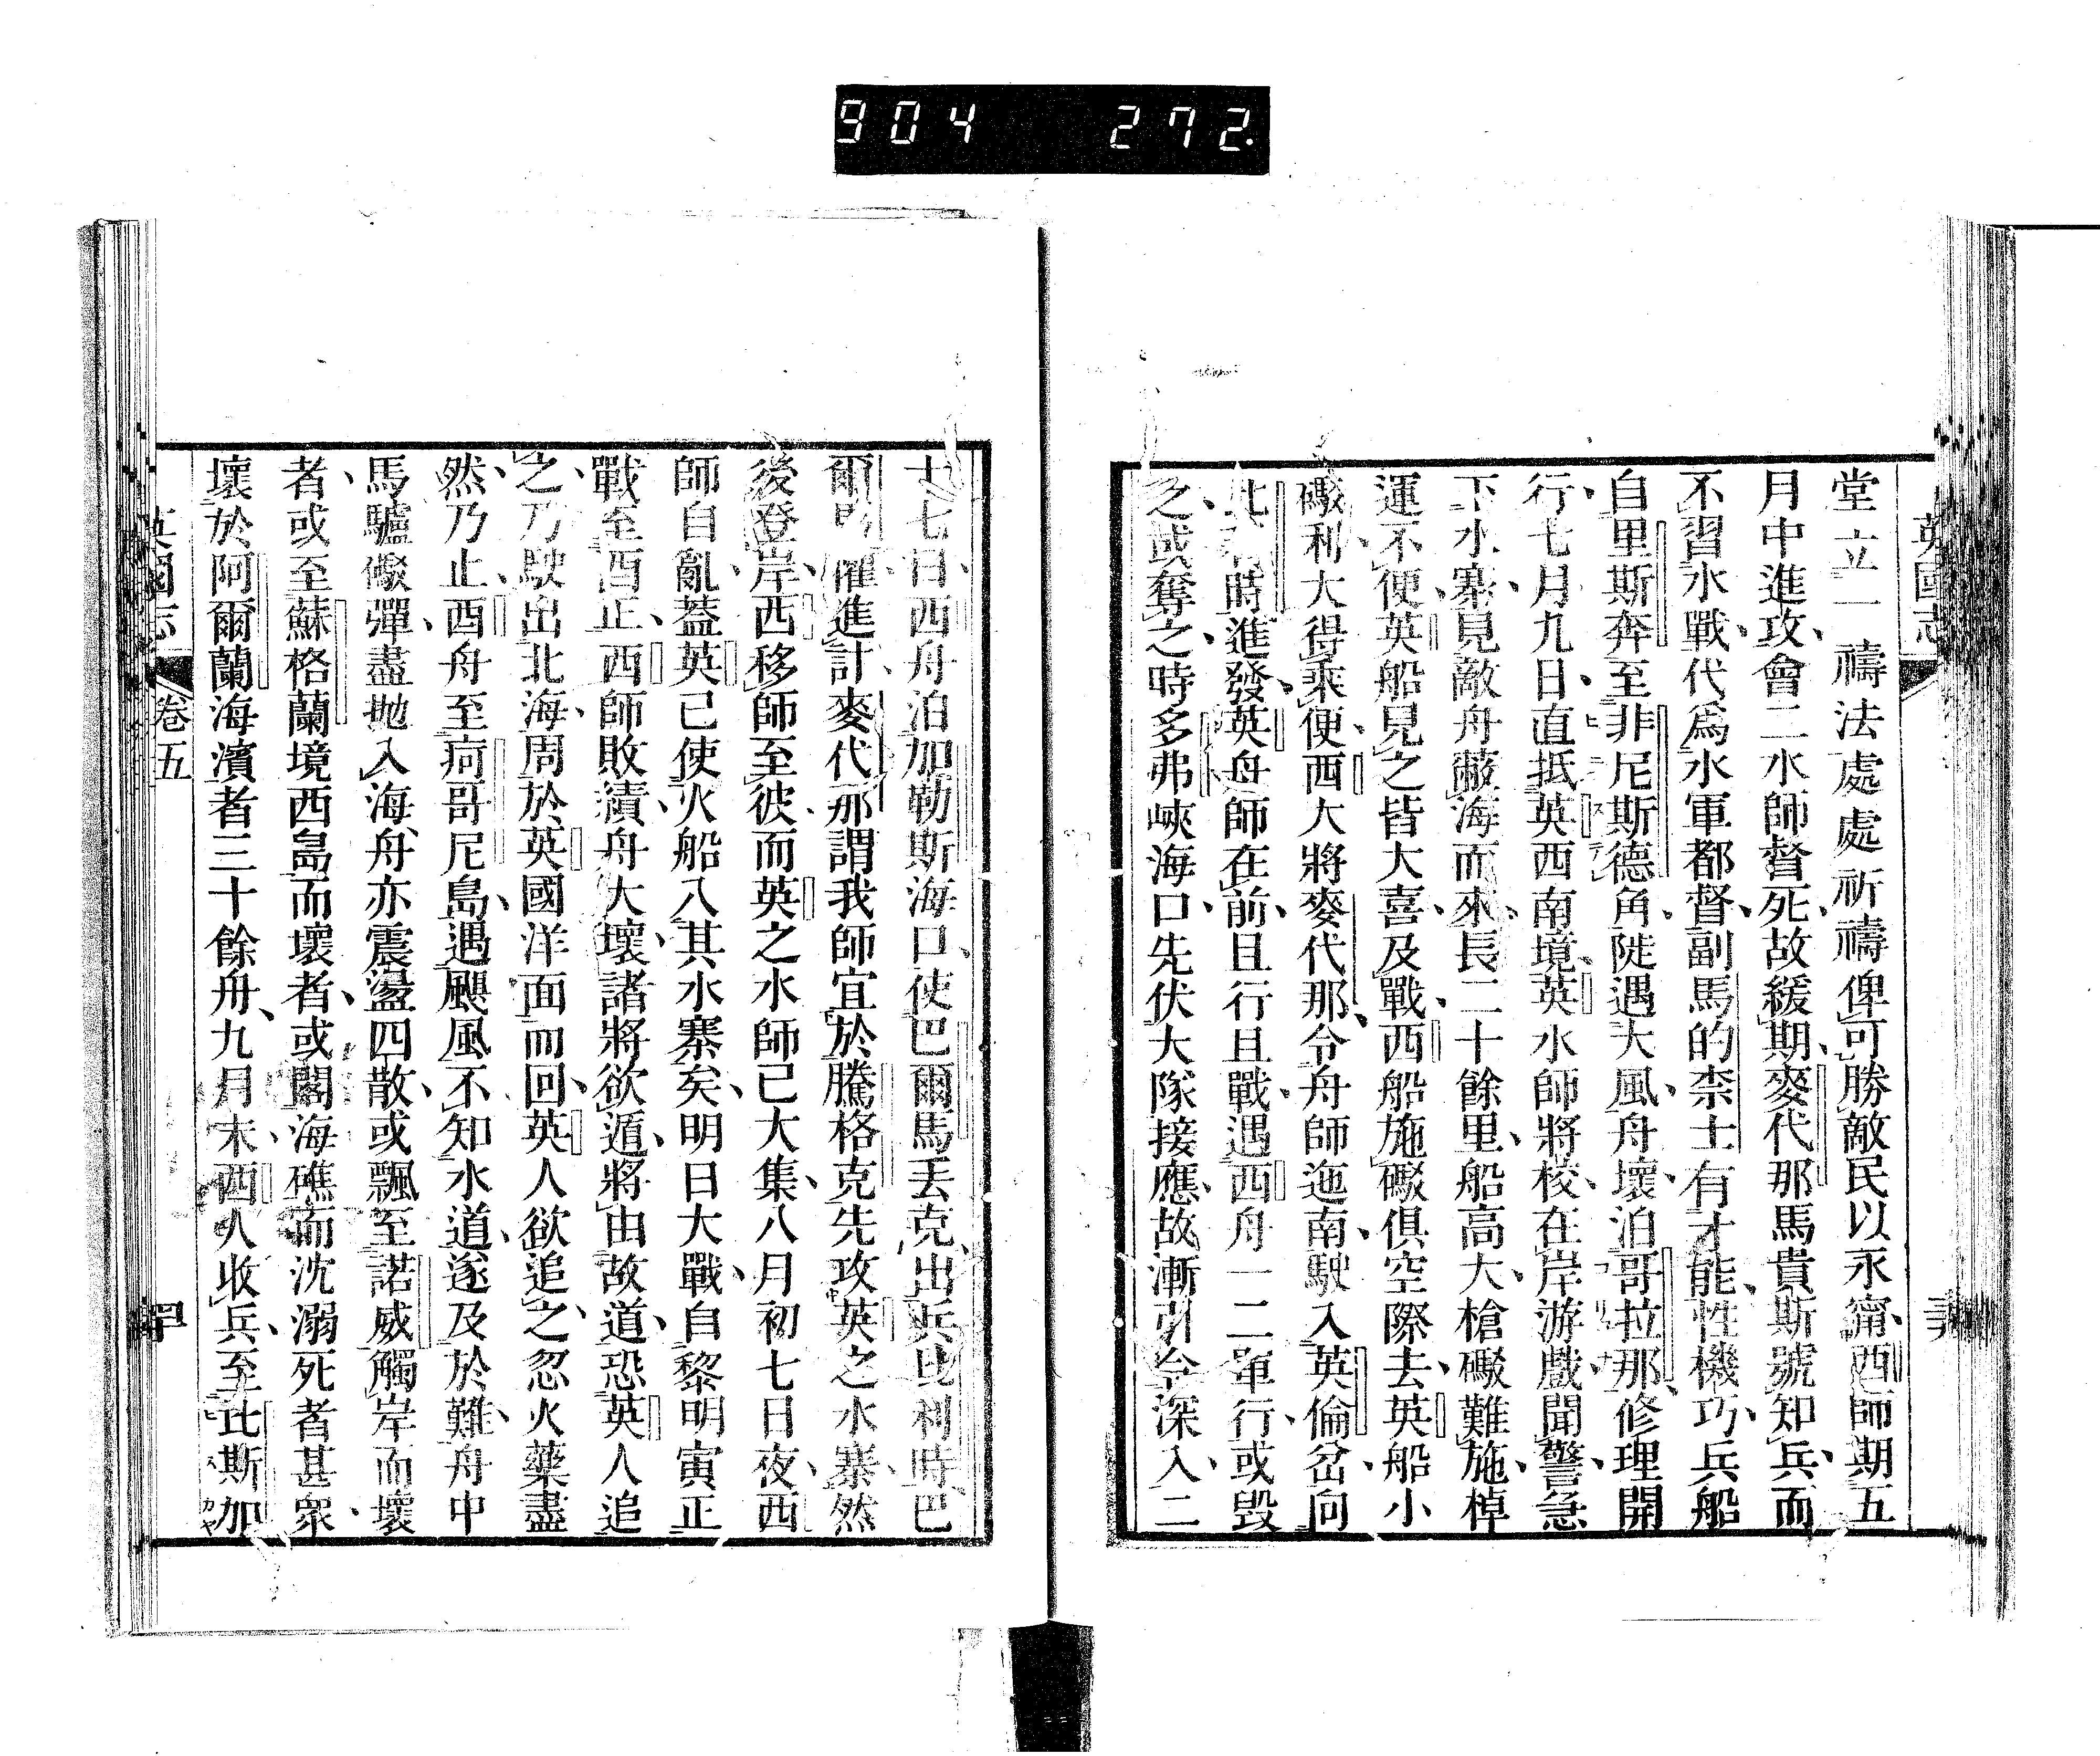 904 272.
英國志
堂立一禱法處處祈禱俾可勝敵民以永甯西師期五
月中進攻會二水師督死故緩期麥代那馬貴斯號知兵而
不習水戰代爲水軍都督副馬的柰士有才能性機巧兵船
自里斯奔至非尼斯德角陡遇大風舟壞泊哥拉那修理開
行七月九日直抵英西南境英水師將校在岸游戲聞警急
下水寨見敵舟蔽海而來長二十餘里船高大槍礮難施棹
運不便英船見之皆大喜及戰西船施礮俱空際去英船小
礮利大得乘便西大將麥代那令舟師迤南駛入英倫岔向
時進發英舟師在前且行且戰遇西舟一二單行或毀
之或奪之時多弗峽海口先伏大隊接應故漸引令深入二
十七日西舟泊加勒斯海口使巴爾馬丢克出兵比利時巴
爾馬懼進計麥代那謂我師宜於騰格克先攻英之水寨然
後登岸西移師至彼而英之水師已大集八月初七日夜西
師自亂蓋英已使火船入其水寨矣明日大戰自黎明寅正
戰至酉正西師敗績舟大壞諸將欲遁將由故道恐英人追
之乃駛出北海周於英國洋面而回英人欲追之忽火藥盡
然乃止西舟至疴哥尼島遇颶風不知水道遂及於難舟中
馬驢礮彈盡拋入海舟亦震盪四散或飄至諾威觸岸而壞
者或至蘇格蘭境西島而壞者或閣海礁而沈溺死者甚眾
壞於阿爾蘭海濱者三十餘舟九月末西人收兵至比斯加
英國志 卷五